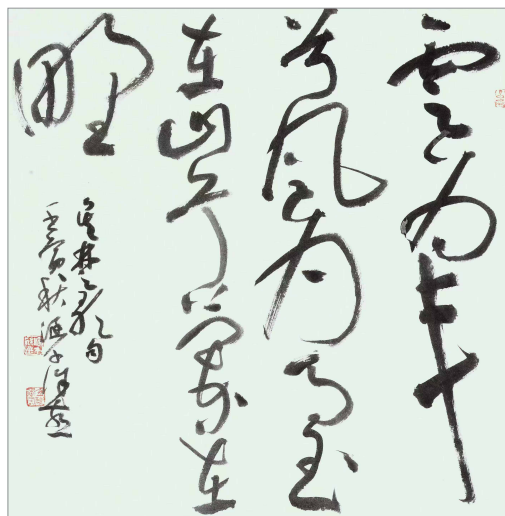 雲為車
兮風為馬玉
在山兮蘭在
野
吳楚歌句
壬寅秋